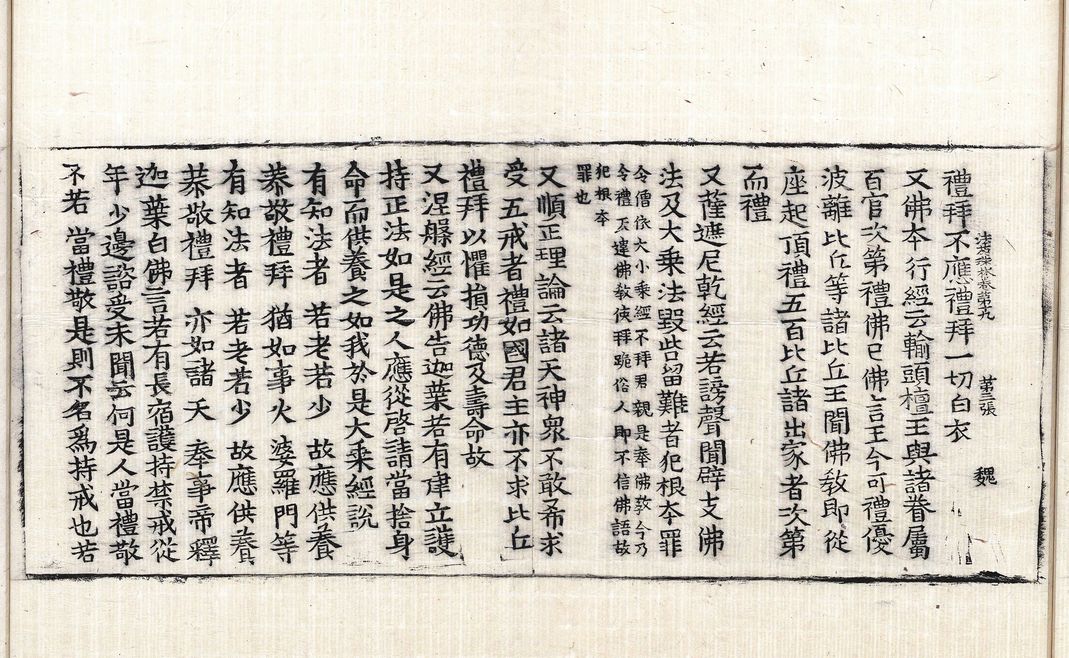 禮拜不應禮拜一切白衣
法苑珠林卷第十九 第三張 魏
又佛本行經云輸頭檀王與諸眷屬
百官次第禮佛已佛言王今可禮優
波離比丘等諸比丘王聞佛敎即從
座起頂禮五百比丘諸出家者次第
而禮
又薩遮尼乾經云若謗聲聞辟支佛
法及大乗法毀呰留難者犯根本罪
今僧依大小乗經不拜君親是奉佛敎今乃
令禮 違佛敎使拜跪俗人即不信佛語故
犯根本
罪也
又順正理論云諸天神衆不敢希求
受五戒者禮如國君主亦不求比丘
禮拜以懼損功德及壽命故
又涅槃經云佛告迦葉若有建立護
持正法如是之人應從啓請當捨身
命而供養之如我於是大乗經說
有知法者 若老若少 故應供養
恭敬禮拜 猶如事火 婆羅門等
有知法者 若老若少 故應供養
恭敬禮拜 亦如諸天 奉事帝釋
迦葉白佛言若有長宿護持禁戒從
年少邊諮受未聞云何是人當禮敬
不若當禮敬是則不名爲持戒也若